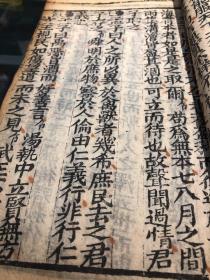 海有本者如是是之取爾苟為無本七八月之間
雨集溝澮皆盈其涸也可立而待也故聲聞過情君
曰人之所以異於禽獸者幾希庶民去之君
子存之舜明於庶物察於人倫由仁義行非行仁
曰禹惡旨酒而好善言湯執中立賢無方
視民如傷望道而未之見武王